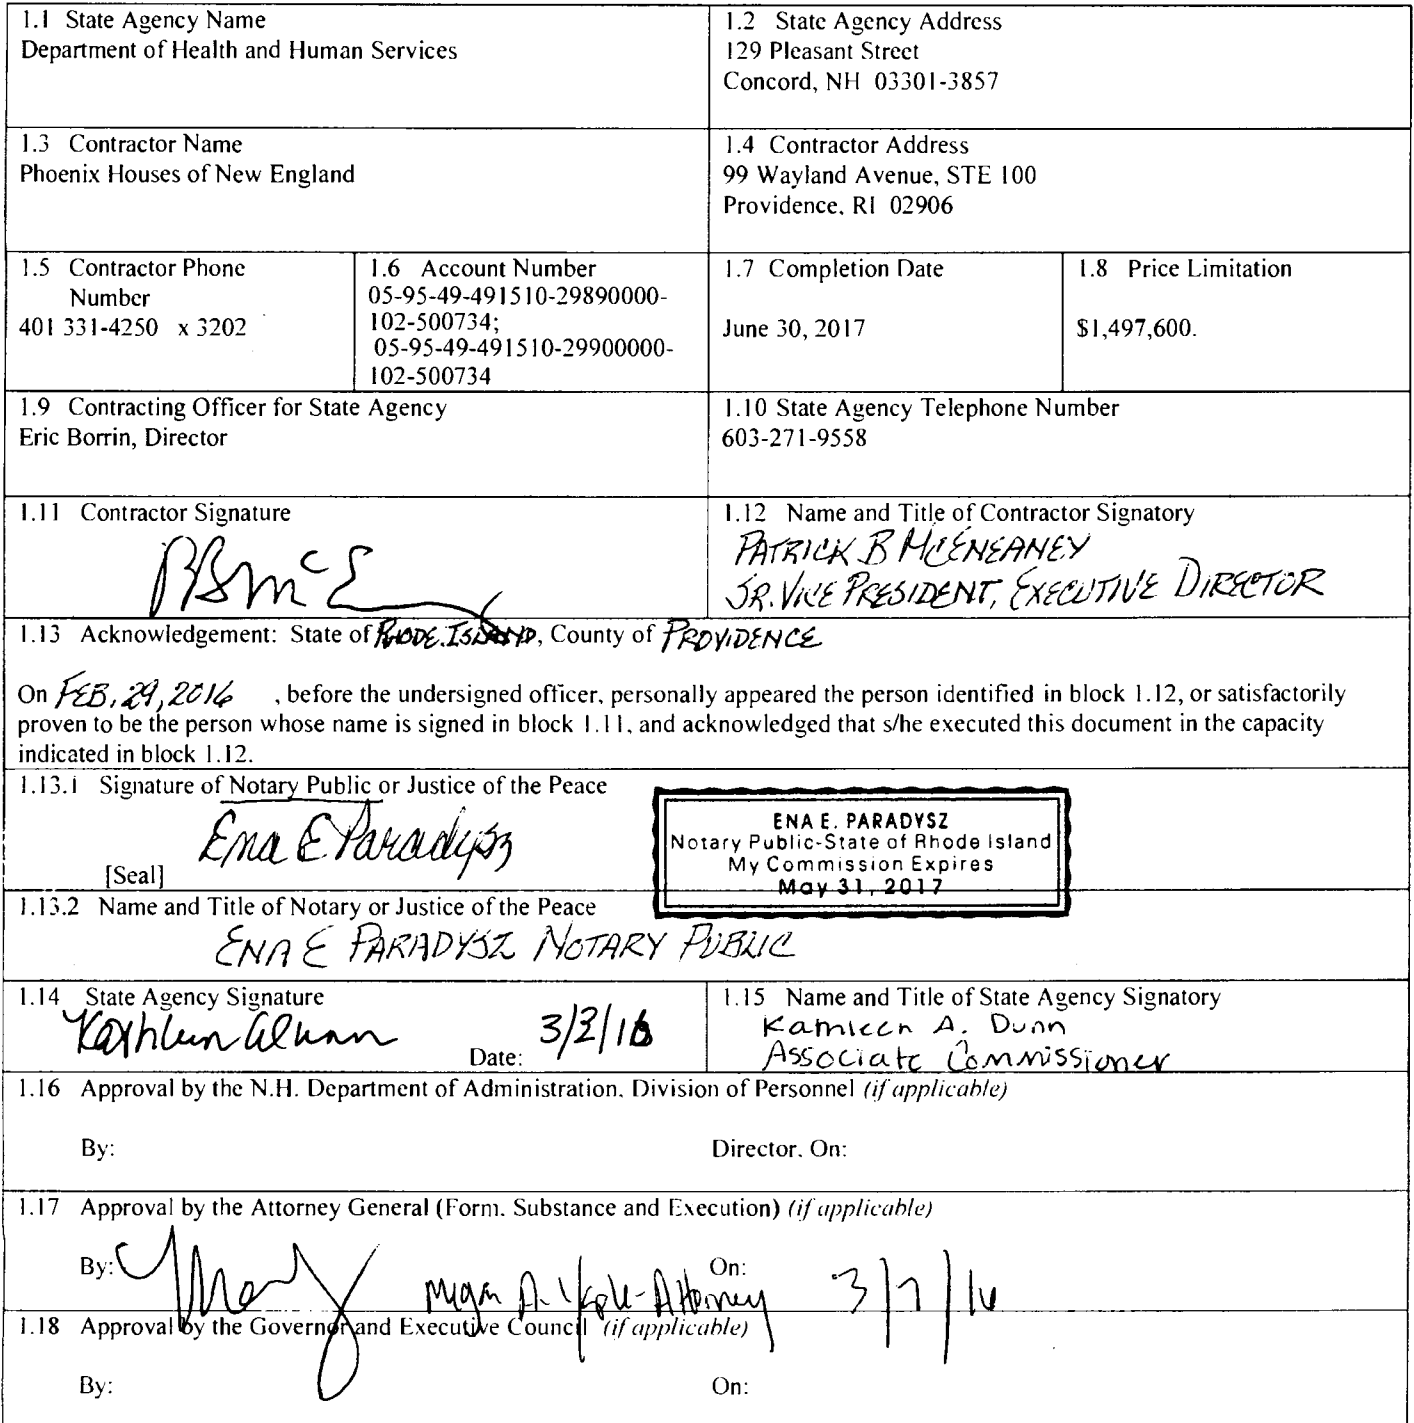 1.1 State Agency Name
Department of Health and Human Services
1.2 State Agency Address
129 Pleasant Street
Concord, NH 03301-3857
1.3 Contractor Name
Phoenix Houses of New England
1.4 Contractor Address
99 Wayland Avenue, STE 100
Providence, RI 02906
1.5 Contractor Phone
Number
401 331-4250 x 3202
1.6 Account Number
05-95-49-491510-29890000-
102-500734;
05-95-49-491510-29900000-
102-500734
1.7 Completion Date
June 30, 2017
1.8 Price Limitation
$1,497,600.
1.9 Contracting Officer for State Agency
Eric Borrin, Director
1.10 State Agency Telephone Number
603-271-9558
1.11 Contractor Signature
1.12 Name and Title of Contractor Signatory
PATRICK B MCENEANEY
SR. VICE PRESIDENT, EXECUTIVE DIRECTOR
1.13 Acknowledgement: State of RHODE ISLAND, County of PROVIDENCE
On FEB. 29, 2016 , before the undersigned officer, personally appeared the person identified in block 1.12, or satisfactorily
proven to be the person whose name is signed in block 1.11, and acknowledged that s/he executed this document in the capacity
indicated in block 1.12.
1.13.1 Signature of Notary Public or Justice of the Peace
Ena E Paradysz
[Seal]
ENA E. PARADYSZ
Notary Public-State of Rhode Island
My Commission Expires
May 31, 2017
1.13.2 Name and Title of Notary or Justice of the Peace
ENA E PARADYSZ NOTARY PUBLIC
1.14 State Agency Signature
Date:
1.15 Name and Title of State Agency Signatory
Kathleen A. Dunn
Associate Commissioner
1.16 Approval by the N.H. Department of Administration, Division of Personnel (if applicable)
By:
Director, On:
1.17 Approval by the Attorney General (Form, Substance and Execution) (if applicable)
By:
Megan A. - Attorney
On:
3/7/16
1.18 Approval by the Governor and Executive Council (if applicable)
By:
On: